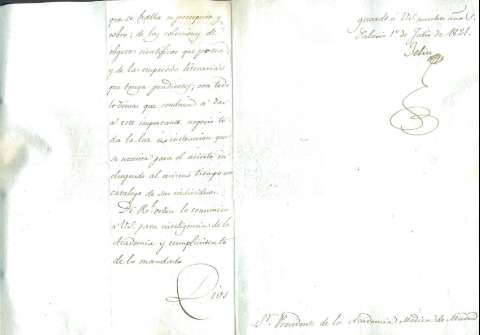 que se halla su percepcion y
cobro; de las colecciones de
objetos científicos que posea
y de las empresas literarias
que tenga pendientes; con todo
lo demas que conduzca á dar
á este importante negocio to
da la luz é instruccion que
se necesita para el acierto in
cluyendo al mismo tiempo un
catalogo de sus individuos.
De Rl. orden lo comunico
á V.S. para inteligencia de la
Academia y cumplimiento
de lo mandado.
Dios
guarde á V.S. muchos años
Palacio 1º de Julio de 1821.
Sr. Presidente de la Academia Medica de Madrid